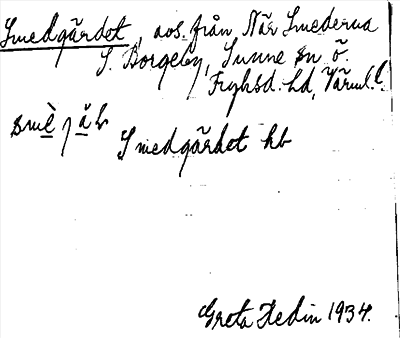 Smedgärdet, aos. från När Smederna
S. Borgeby, Sunne sn ö.
Fryksd. hd, Värml. l.
Smedgärdet hb
Greta Hedin 1934.